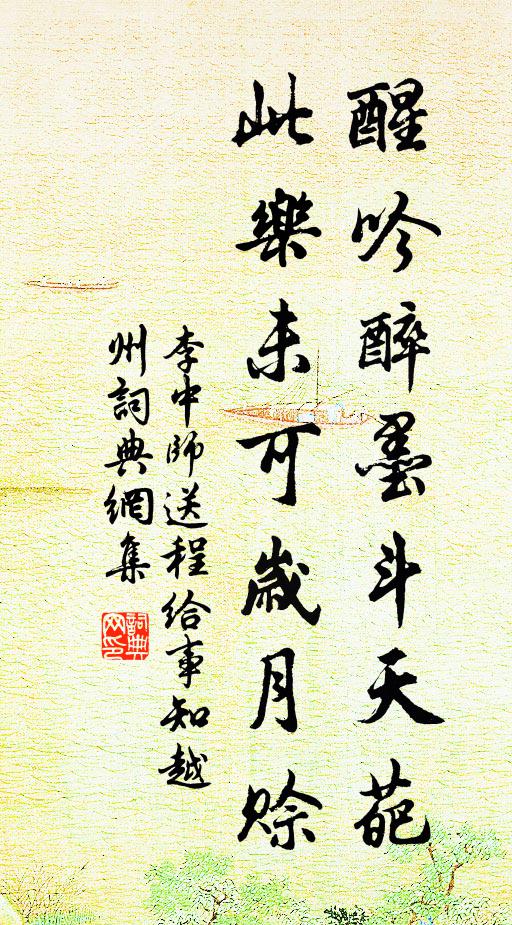 醒吟醉墨斗天葩
此樂未可歲月賒
李中師送程給事知越
州詞典網集
詞典网印